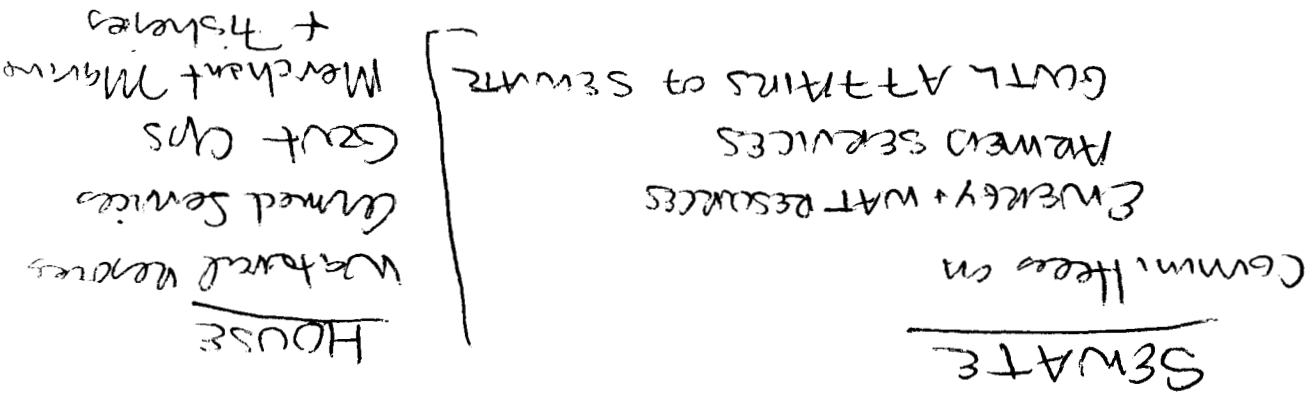 SENATE
Committees on
ENERGY + NAT RESOURCES
ARMED SERVICES
GOVTL AFFAIRS of SENATE
HOUSE
Natural Resources
Armed Services
Govt Ops
Merchant Marine
+ Fisheries